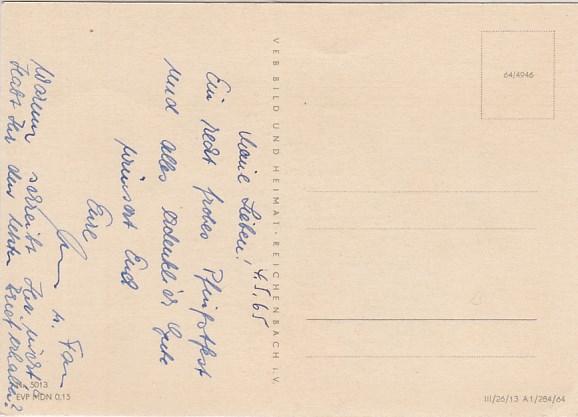 Meine Lieben! 4.5.65
Ein recht frohes Pfingstfest
und alles erdenklich Gute
wünscht Euch
Eure
u. Fam
Warum schreibt Ihr nicht?
Habt Ihr den letzten Brief erhalten?
VEB BILD UND HEIMAT · REICHENBACH i. V.
64/4946
5013
EVP MDN 0,15
III/26/13 A 1/284/64